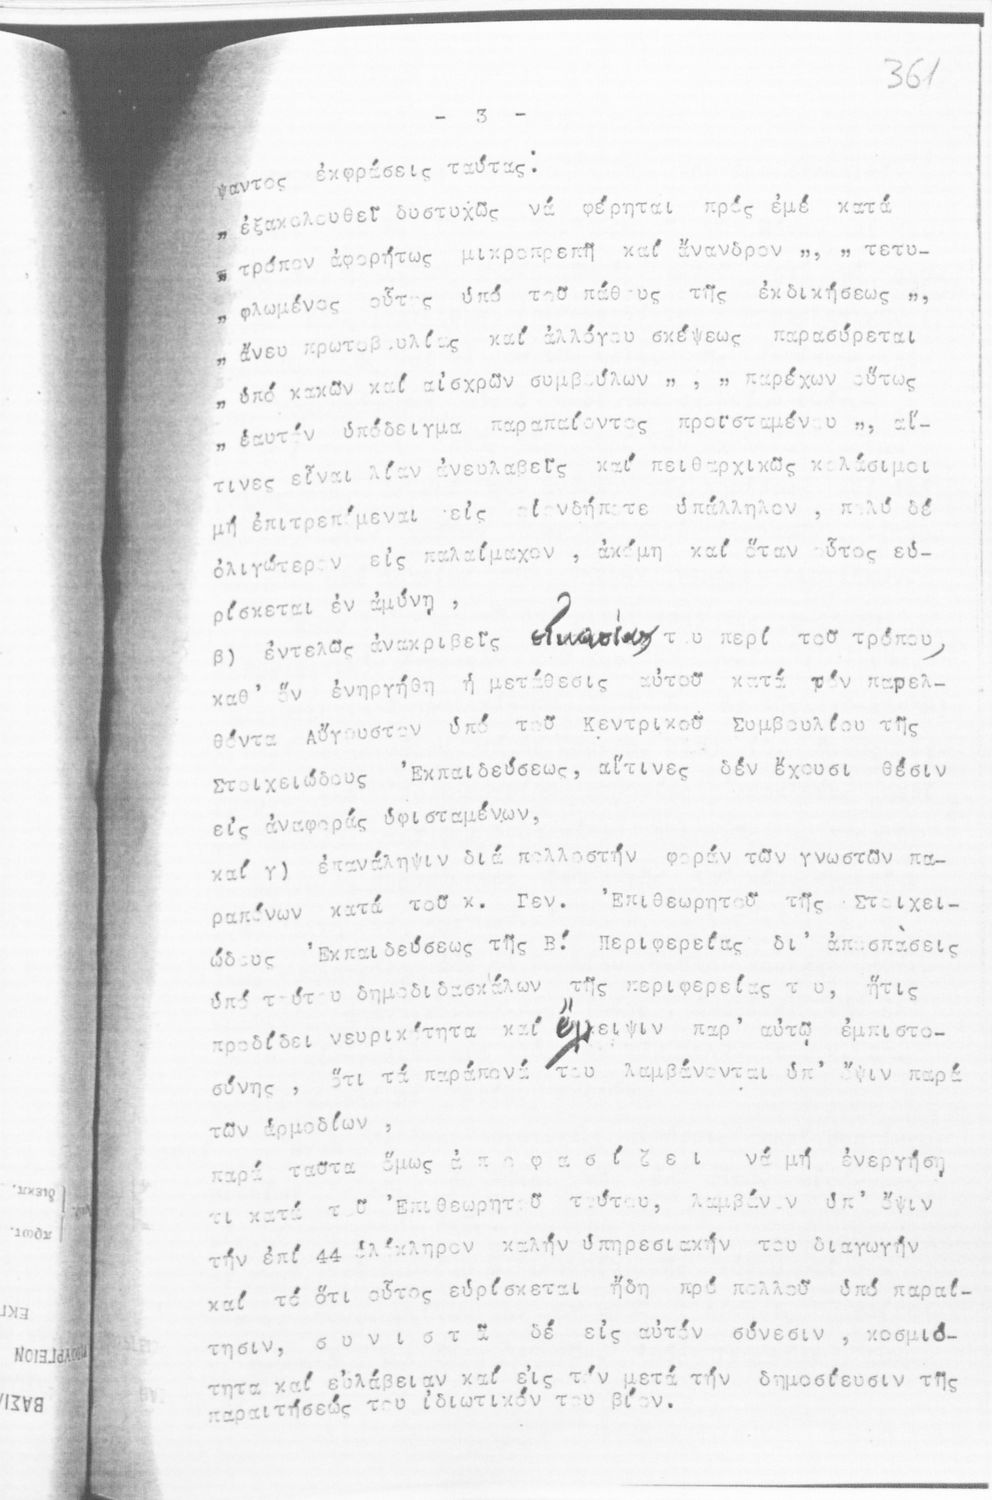 361
- 3 -
ψαντος ἐκφράσεις ταύτας:
„ ἐξακολουθεῖ δυστυχῶς νά φέρηται πρός ἐμέ κατά
„ τρόπον ἀφορήτως μικροπρεπῆ καί ἄνανδρον „, „ τετυ-
„ φλωμένος οὗτος ὑπό τοῦ πάθους τῆς ἐκδικήσεως „,
„ ἄνευ πρωτοβουλίας καί ἀλλόγου σκέψεως παρασύρεται
„ ὑπό κακῶν καί αἰσχρῶν συμβούλων „ , „ παρέχων οὕτως
„ ἑαυτόν ὑπόδειγμα παραπαίοντος προϊσταμένου „, αἵ-
τινες εἶναι λίαν ἀνευλαβεῖς καί πειθαρχικῶς κολάσιμοι
μή ἐπιτρεπόμεναι εἰς οἱονδήποτε ὑπάλληλον , πολύ δέ
ὀλιγώτερον εἰς παλαίμαχον , ἀκόμη καί ὅταν οὗτος εὑ-
ρίσκεται ἐν ἀμύνῃ ,
β) ἐντελῶς ἀνακριβεῖς εἰκασίας του περί τοῦ τρόπου,
καθ' ὅν ἐνηργήθη ἡ μετάθεσις αὐτοῦ κατά τόν παρελ-
θόντα Αὔγουστον ὑπό τοῦ Κεντρικοῦ Συμβουλίου τῆς
Στοιχειώδους Ἐκπαιδεύσεως, αἵτινες δέν ἔχουσι θέσιν
εἰς ἀναφοράς ὑφισταμένων,
καί γ) ἐπανάληψιν διά πολλοστήν φοράν τῶν γνωστῶν πα-
ραπόνων κατά τοῦ κ. Γεν. Ἐπιθεωρητοῦ τῆς Στοιχει-
ώδους Ἐκπαιδεύσεως τῆς Β! Περιφερείας δι' ἀποσπάσεις
ὑπό τούτου δημοδιδασκάλων τῆς περιφερείας του, ἥτις
προδίδει νευρικότητα καί ἔλλειψιν παρ' αὐτῷ ἐμπιστο-
σύνης , ὅτι τά παράπονά του λαμβάνονται ὑπ' ὄψιν παρά
τῶν ἁρμοδίων ,
παρά ταῦτα ὅμως ἀ π ο φ α σ ί ζ ε ι νά μή ἐνεργήσῃ
τι κατά τοῦ Ἐπιθεωρητοῦ τούτου, λαμβάνον ὑπ' ὄψιν
τήν ἐπί 44 ὁλόκληρον καλήν ὑπηρεσιακήν του διαγωγήν
καί τό ὅτι οὗτος εὑρίσκεται ἤδη πρό πολλοῦ ὑπό παραί-
τησιν, σ υ ν ι σ τ ᾷ δέ εἰς αὐτόν σύνεσιν , κοσμιό-
τητα καί εὐλάβειαν καί εἰς τόν μετά τήν δημοσίευσιν τῆς
παραιτήσεώς του ἰδιωτικόν του βίον.